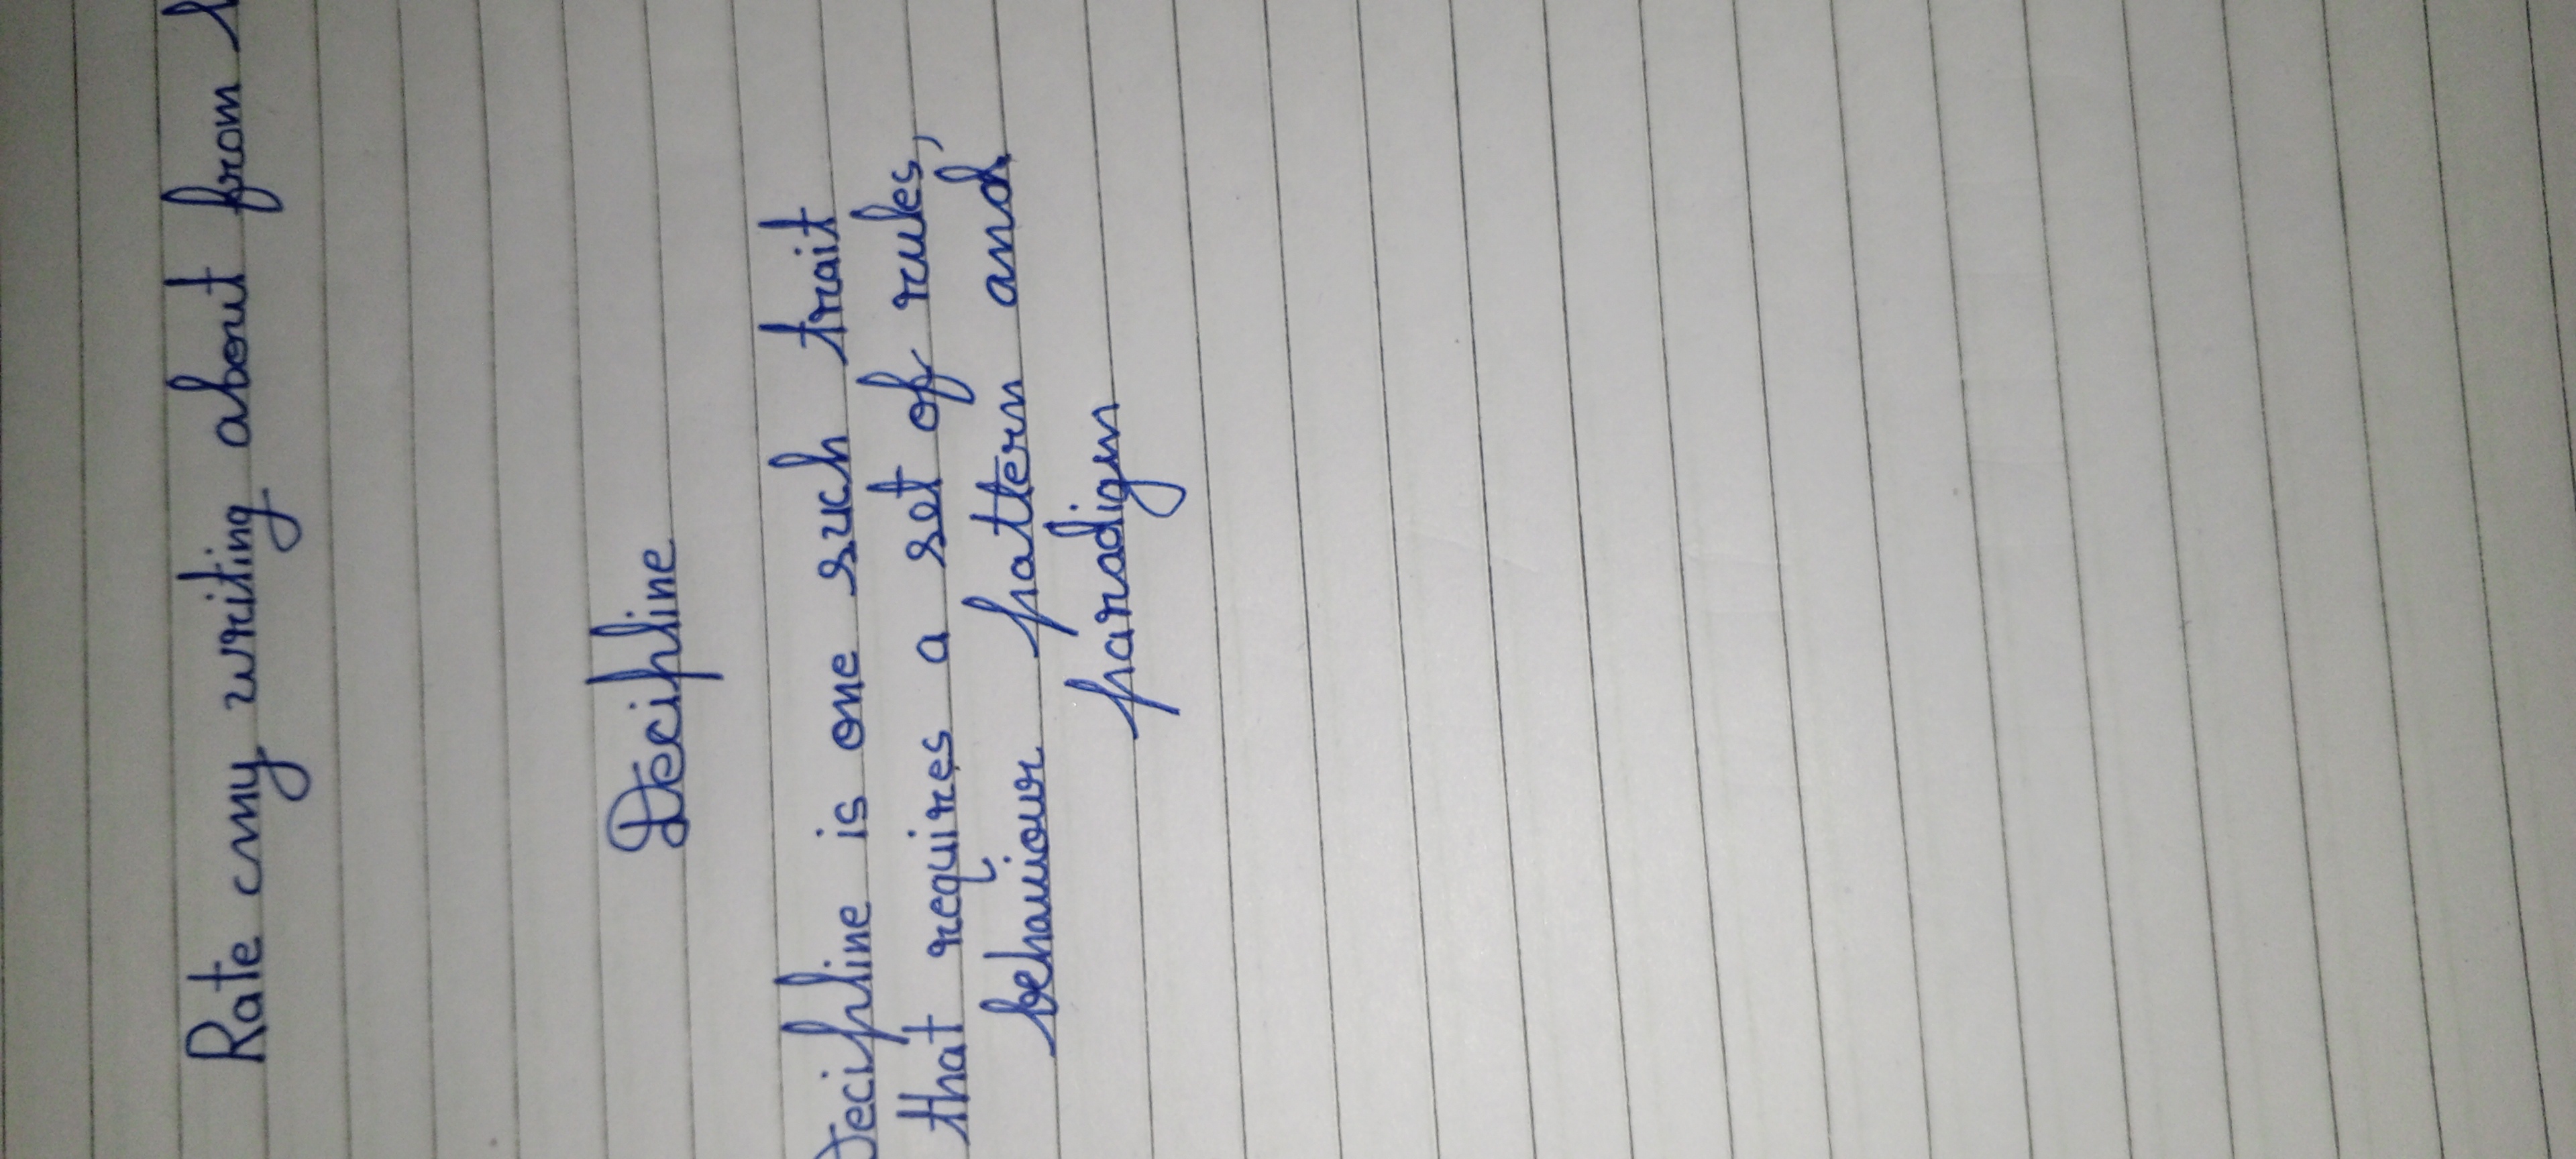 Rate my writing about from
Decipline
Decipline is one such trait
that requires a set of rules,
behaviour pattern and
paradigm